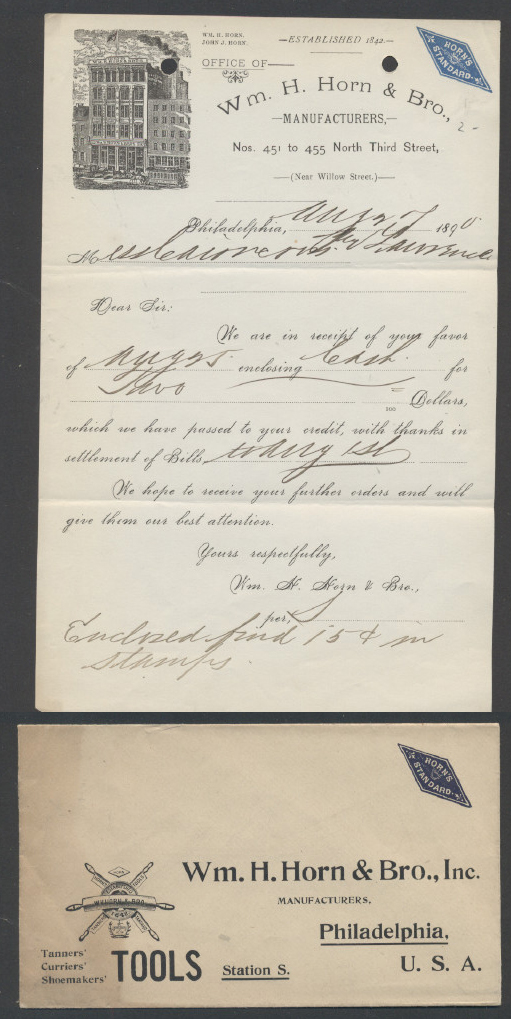 WM. H. HORN.
JOHN J. HORN.
—ESTABLISHED 1842—
HORN'S
STANDARD
OFFICE OF
Wm. H. Horn & Bro.,
—MANUFACTURERS,—
Nos. 451 to 455 North Third Street,
—(Near Willow Street.)—
Philadelphia, Aug 7 1890
M
Dear Sir:
We are in receipt of your favor
of Aug 5 enclosing Cash for
Two
100 Dollars,
which we have passed to your credit, with thanks in
settlement of Bills to Aug 1st
We hope to receive your further orders and will
give them our best attention.
Yours respectfully,
Wm. H. Horn & Bro.,
per,
Enclosed find 15 ¢ in
Stamps.
HORN'S
STANDARD
Wm. H. Horn & Bro., Inc.
MANUFACTURERS.
Philadelphia,
WM HORN & BRO
1842
Tanners'
Curriers'
Shoemakers'
TOOLS
Station S.
U. S. A.